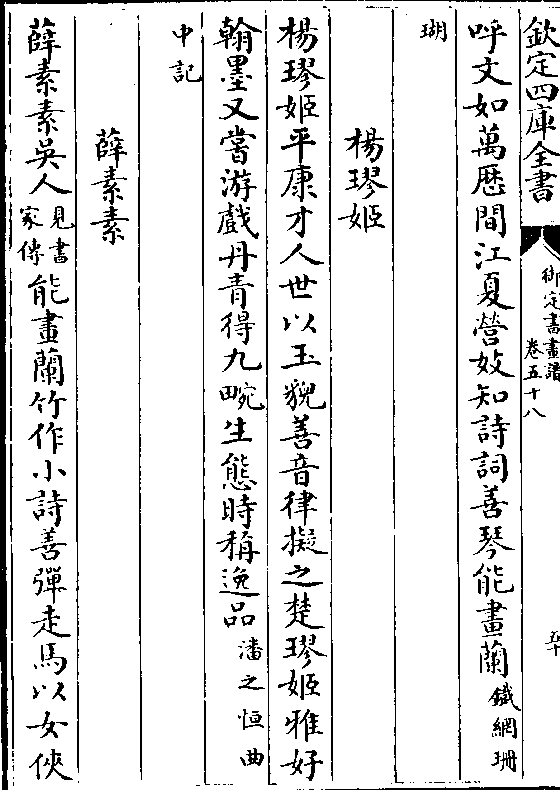 欽定四庫全書
御定書畫譜
卷五十八
呼文如萬厯間江夏營妓知詩詞善琴能畫蘭鐵網珊
瑚
楊璆姬
楊璆姬平康才人世以玉貌善音律擬之楚璆姬雅好
翰墨又嘗游戲丹青得九畹生態時稱逸品潘之恒曲
中記
薛素素
薛素素吳人見書家傳能畫蘭竹作小詩善彈走馬以女俠